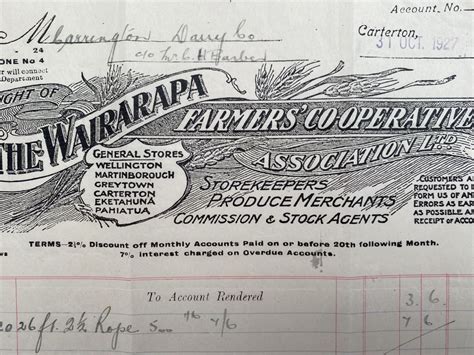 Account No.
M Carrington Dairy Co
c/o Mr C. H.
Carterton,
24
31 OCT. 1927
ONE No 4
er will connect
Department
GHT OF
THE WAIRARAPA
FARMERS' CO-OPERATIVE
ASSOCIATION LTD
GENERAL STORES
WELLINGTON
MARTINBOROUGH
GREYTOWN
CARTERTON
EKETAHUNA
PAHIATUA
STOREKEEPERS
PRODUCE MERCHANTS
COMMISSION & STOCK AGENTS
CUSTOMERS A
REQUESTED TO
FORM US OF AN
ERRORS AS EAR
AS POSSIBLE A
RECEIPT OF ACCO
TERMS—2½% Discount off Monthly Accounts Paid on or before 20th following Month.
7% interest charged on Overdue Accounts.
To Account Rendered 3. 6.
26 ft. 2½ Rope 7/6 7 6